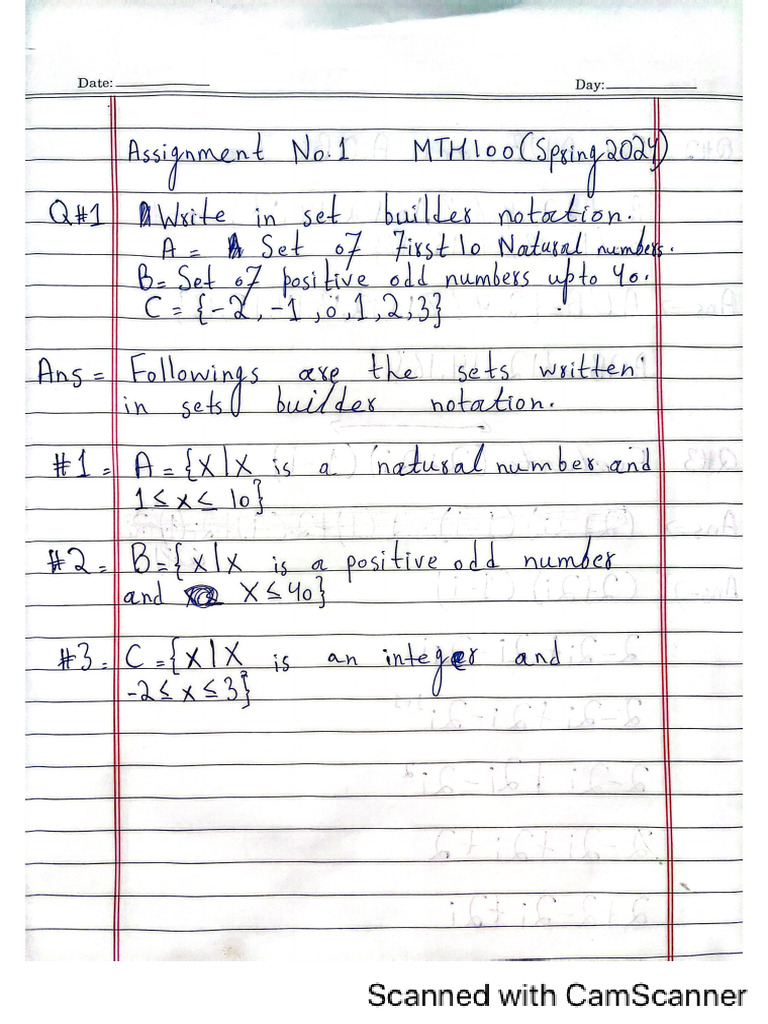 Date:
Day:
Assignment No.1 MTH100(Spring2024)
Q#1 Write in set builder notation.
A = Set of First 10 Natural numbers.
B= Set of positive odd numbers upto 40.
C = {-2, -1, 0, 1, 2, 3}
Ans = Followings are the sets written
in sets builder notation.
#1 = A = {x | x is a natural number and
1 ≤ x ≤ 10}
#2 = B = {x | x is a positive odd number
and x ≤ 40}
#3 = C = {x | x is an integer and
-2 ≤ x ≤ 3}
Scanned with CamScanner